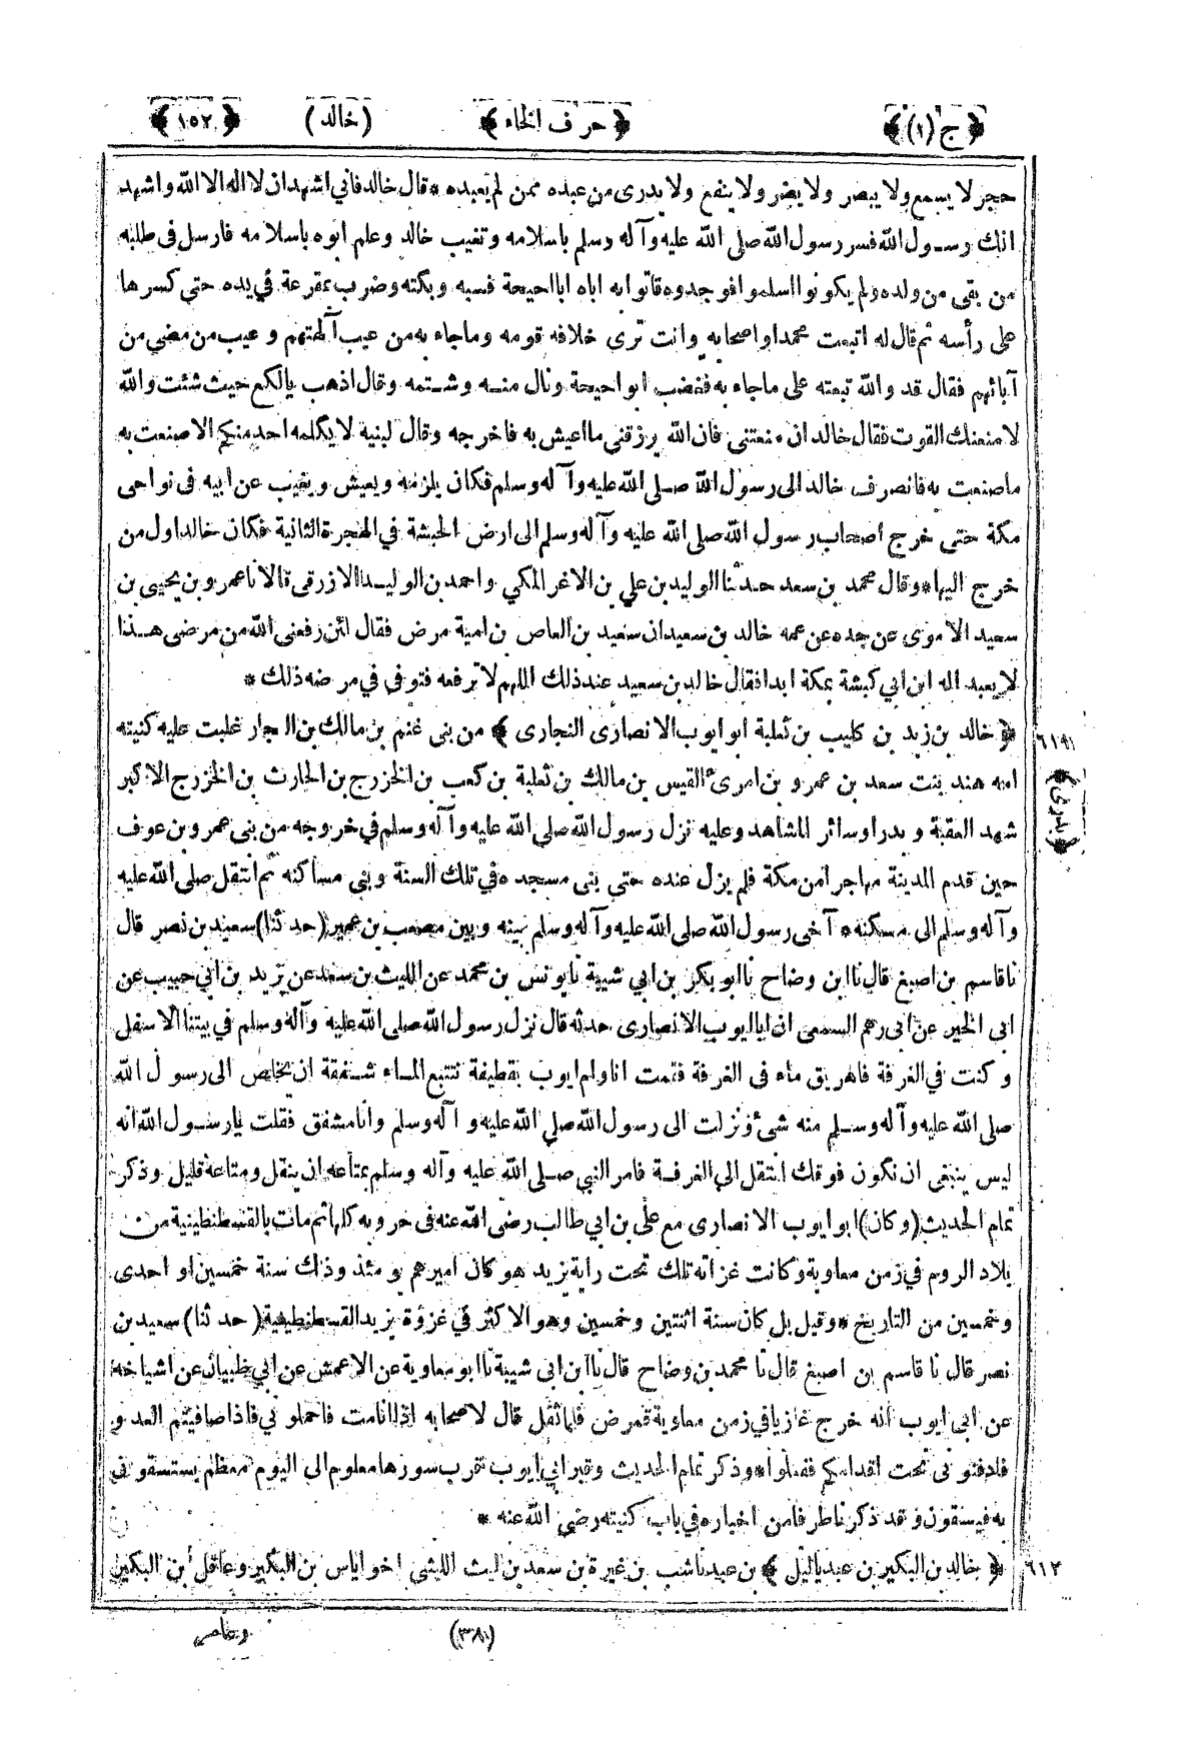 ﴿ ج (١) ﴾ ﴿ حرف الخاء ﴾ (خالد) ﴿ ١٥٢ ﴾
حجر لا يسمع ولا يبصر ولا يضر ولا ينفع ولا يدرى من عبده ممن لم يعبده * قال خالد فاني اشهد ان لا اله الا الله واشهد
انك رسول الله فسر رسول الله صلى الله عليه وآله وسلم باسلامه وتغيب خالد وعلم ابوه باسلامه فارسل فى طلبه
من بقى من ولده ولم يكونوا اسلموا فوجدوه فاتوا به اباه ابا احيحة فسبه وبكته وضرب بمقرعة في يده حتى كسرها
على رأسه ثم قال له اتبعت محمدا واصحابه وانت ترى خلافه قومه وماجاء به من عيب آلهتهم وعيب من مضى من
آبائهم فقال قد والله تبعته على ماجاء به فغضب ابو احيحة ونال منه وشتمه وقال اذهب يالكع حيث شئت والله
لا منعنك القوت فقال خالد ان منعتنى فان الله يرزقنى ما اعيش به فاخرجه وقال لبنيه لا يكلمه احد منكم الا صنعت به
ماصنعت به فانصرف خالد الى رسول الله صلى الله عليه وآله وسلم فكان يلزمه ويعيش ويغيب عن ابيه فى نواحى
مكة حتى خرج أصحاب رسول الله صلى الله عليه وآله وسلم الى ارض الحبشة في الهجرة الثانية فكان خالد اول من
خرج اليها * وقال محمد بن سعد حدثنا الوليد بن علي بن الاغر المكي واحمد بن الوليد الازرقى قالا نا عمرو بن يحيى بن
سعيد الاموى عن جده عن عمه خالد بن سعيد ان سعيد بن العاص بن امية مرض فقال لئن رفعنى الله من مرضى هذا
لا يعبد اله ابن ابي كبشة بمكة ابدا فقال خالد بن سعيد عند ذلك اللهم لا ترفعه فتوفى في مرضه ذلك *
﴿ خالد بن زيد بن كليب بن ثعلبة ابو ايوب الانصارى النجارى ﴾ من بنى غنم بن مالك بن النجار غلبت عليه كنيته
امه هند بنت سعد بن عمرو بن امرئ القيس بن مالك بن ثعلبة بن كعب بن الخزرج بن الحارث بن الخزرج الاكبر
﴿ بدرى ﴾
شهد العقبة وبدرا وسائر المشاهد وعليه نزل رسول الله صلى الله عليه وآله وسلم في خروجه من بنى عمرو بن عوف
حين قدم المدينة مهاجرا من مكة فلم يزل عنده حتى بنى مسجده في تلك السنة وبنى مساكنه ثم انتقل صلى الله عليه
وآله وسلم الى مسكنه * آخى رسول الله صلى الله عليه وآله وسلم بينه وبين مصعب بن عمير (حدثنا) سعيد بن نصر قال
نا قاسم بن اصبغ قال نا ابن وضاح نا ابو بكر بن ابي شيبة نا يونس بن محمد عن الليث بن سعد عن يزيد بن ابي حبيب عن
ابى الخير عن ابى رهم السمعى ان ابا ايوب الانصارى حدثه قال نزل رسول الله صلى الله عليه وآله وسلم في بيتنا الاسفل
وكنت في الغرفة فاهريق ماء فى الغرفة فقمت انا وام ايوب بقطيفة نتتبع الماء شفقة ان يخلص الى رسول الله
صلى الله عليه وآله وسلم منه شئ ونزلت الى رسول الله صلى الله عليه وآله وسلم وانا مشفق فقلت يا رسول الله انه
ليس ينبغى ان نكون فوقك انتقل الى الغرفة فامر النبي صلى الله عليه وآله وسلم بمتاعه ان ينقل ومتاعه قليل وذكر
تمام الحديث (وكان) ابو ايوب الانصارى مع على بن ابي طالب رضى الله عنه فى حروبه كلها ثم مات بالقسطنطينية من
بلاد الروم في زمن معاوية وكانت غزاته تلك تحت راية يزيد هو كان اميرهم يومئذ وذلك سنة خمسين او احدى
وخمسين من التاريخ * وقيل بل كان سنة اثنتين وخمسين وهو الاكثر في غزوة يزيد القسطنطينية (حدثنا) سعيد بن
نصر قال نا قاسم بن اصبغ قال نا محمد بن وضاح قال نا ابن ابى شيبة نا ابو معاوية عن الاعمش عن ابي ظبيان عن اشياخه
عن ابى ايوب انه خرج غازيا في زمن معاوية فمرض فلما ثقل قال لاصحابه اذا انا مت فاحملوني فاذا صافيتم العدو
فادفنونى تحت اقدامكم ففعلوا * وذكر تمام الحديث وقبر ابي ايوب قرب سورها معلوم الى اليوم معظم يستسقون
به فيسقون وقد ذكرنا طرفا من اخباره في باب كنيته رضى الله عنه *
٦١٢ ﴿ خالد بن البكير بن عبد ياليل ﴾ بن عبد ناشب بن غيرة بن سعد بن ليث الليثى اخو اياس بن البكير وعاقل بن البكير
(٣٨) وعامر